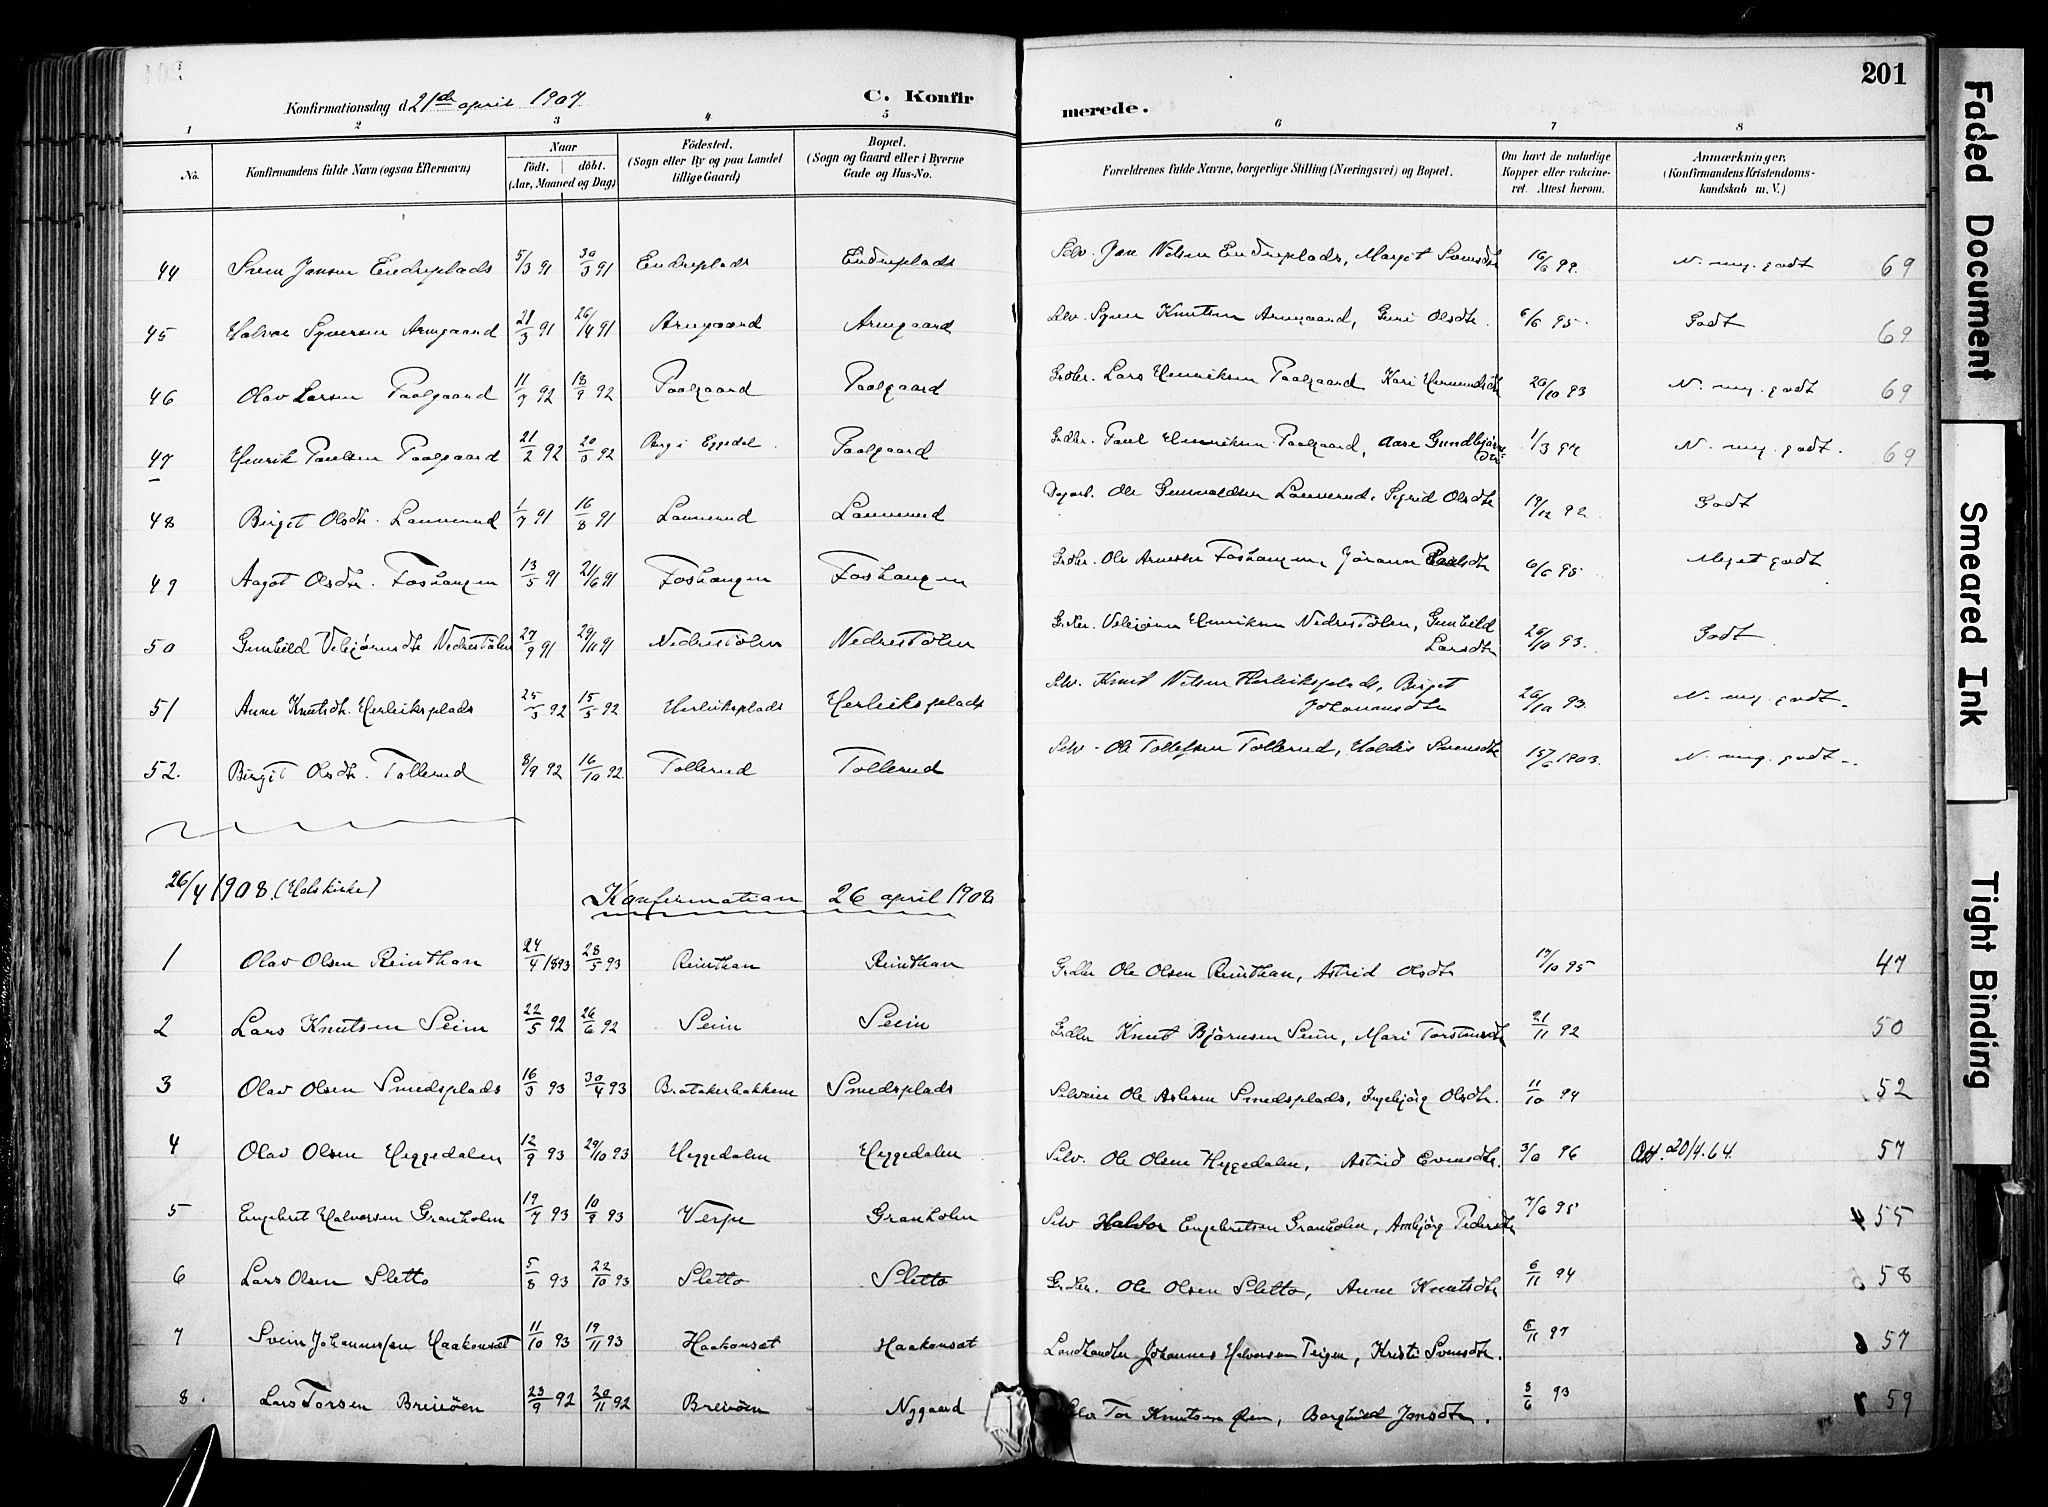 201
Konfirmationsdag d. 21de april 1907
C. Konfirmerede.
1 2 3 4 5 6 7 8
No.
Konfirmandens fulde Navn (ogsaa Efternavn)
Naar
födt. döbt.
(Aar, Maaned og Dag)
Födested.
(Sogn eller By og paa Landet
tillige Gaard)
Bopæl.
(Sogn og Gaard eller i Byerne
Gade og Hus-No.
Forældrenes fulde Navne, borgerlige Stilling (Næringsvei) og Bopæl.
Om havt de naturlige
Kopper eller vakcine-
ret. Attest herom.
Anmærkninger.
(Konfirmandens Kristendoms-
kundskab m. V.)
44 Svein Jonsen Endreplads 5/3 91 30/3 91 Endreplads Endreplads Selv. Jon Nilsen Endreplads, Margit Svensdtr 16/6 92 N. meg. godt 69
45 Halvor Syversen Arnegaard 21/3 91 26/4 91 Arnegaard Arnegaard Selv. Syver Knutsen Arnegaard, Guri Olsdtr. 6/6 95. Godt 69
46 Olav Larsen Paalgaard 11/7 92 18/9 92 Paalgaard Paalgaard Grdbr. Lars Henriksen Paalgaard Kari Hermundsdtr 26/10 93 N. meg. godt 69
47 Henrik Paulsen Paalgaard 21/2 92 20/3 92 Berg i Eggedal Paalgaard Grdbr. Paul Henriksen Paalgaard, Aase Gundbjørns- 1/3 94 N. meg. godt. 69
dtr
48 Birgit Olsdtr. Lannerud 1/7 91 16/8 91 Lannerud Lannerud Dagarb. Ole Gunvaldsen Lannerud, Sigrid Olsdtr 19/12 92 Godt
49 Aagot Olsdtr. Foshaugen 13/5 91 21/6 91 Foshaugen Foshaugen Grdbr. Ole Arnesen Foshaugen, Jørann Paulsdtr 6/6 95 Meget godt
50 Gunhild Vebjørnsdtr Nedrestölen 27/9 91 29/11 91 Nedrestølen Nedrestølen Grdbr. Vebjørn Henriksen Nedrestølen, Gunhild 26/10 93. Godt
Larsdtr
51 Anne Knutsdtr. Herleiksplads 25/3 92 15/5 92 Herleiksplads Herleiksplads Selv. Knut Nilsen Herleiksplads, Birgit 26/10 93. N. meg. godt
Johannesdtr
52. Birgit Olsdtr. Tollerud 8/9 92 16/10 92 Tollerud Tollerud Selv. Ole Tollefsen Tollerud, Holdis Svensdtr 15/6 1903. N. meg. godt
26/4 1908. (Hols kirke) Konfirmation 26 april 1908
1 Olav Olsen Reinthan 24/4 1893 28/5 93 Reinthan Reinthan Grdbr Ole Olsen Reinthan, Astrid Olsdtr 17/10 95 47
2 Lars Knutsen Seim 22/5 92 26/6 92 Seim Seim Grdbr Knut Bjørnsen Seim, Mari Torstensdtr 21/11 92 50
3 Olav Olsen Smedsplads 16/3 93 30/4 93 Bratakerbakkene Smedsplads Selveier Ole Aslesen Smedsplads, Ingebjørg Olsdtr. 11/10 94 52
4 Olav Olsen Heggedalen 12/9 93 29/10 93 Heggedalen Heggedalen Selv. Ole Olsen Heggedalen, Astrid Evensdtr. 3/6 96 Att. 20/4.64. 57
5 Engebret Halvorsen Granholm 19/7 93 10/9 93 Verpe Granholm Selv Halvor Engebretsen Granholm, Ambjørg Pedersdtr 7/6 95 55
6 Lars Olsen Sletto 5/8 93 22/10 93 Sletto Sletto Grdbr. Ole Olsen Sletto, Anne Knutsdtr 6/11 94 58
7 Svein Johannessen Haakonset 11/10 93 19/11 93 Haakonset Haakonset Landhandler Johannes Halvorsen Teigen, Kristi Svensdtr. 6/11 97 57
8. Lars Torsen Breiöen 23/9 92 20/11 92 Breiøen Nygaard Selv Tor Knutsen Øen, Borghild Jonsdtr. 8/6 93 59
Faded Document
Smeared Ink
Tight Binding